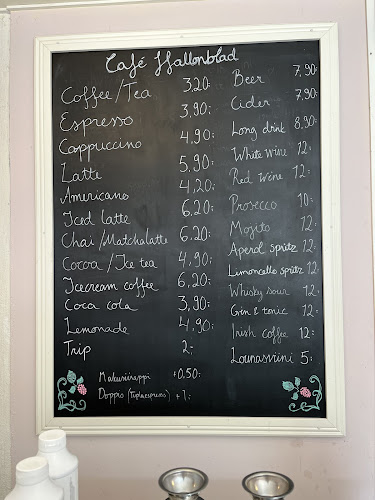 Café Hallonblad
Coffee/Tea 3,20:
Espresso 3,90:
Cappuccino 4,90:
Latte 5,90:
Americano 4,20:
Iced latte 6,20:
Chai/Matchalatte 6,20:
Cocoa/Ice tea 4,90:
Icecream coffee 6,20:
Coca cola 3,90:
Lemonade 4,90:
Trip 2:
Makusiirappi +0,50:
Doppio (tuplaespresso) +1:
Beer 7,90:
Cider 7,90:
Long drink 8,90:
White wine 12:
Red wine 12:
Prosecco 10:
Mojito 12:
Aperol spritz 12:
Limoncello spritz 12:
Whisky sour 12:
Gin & tonic 12:
Irish coffee 12:
Lounasviini 5: